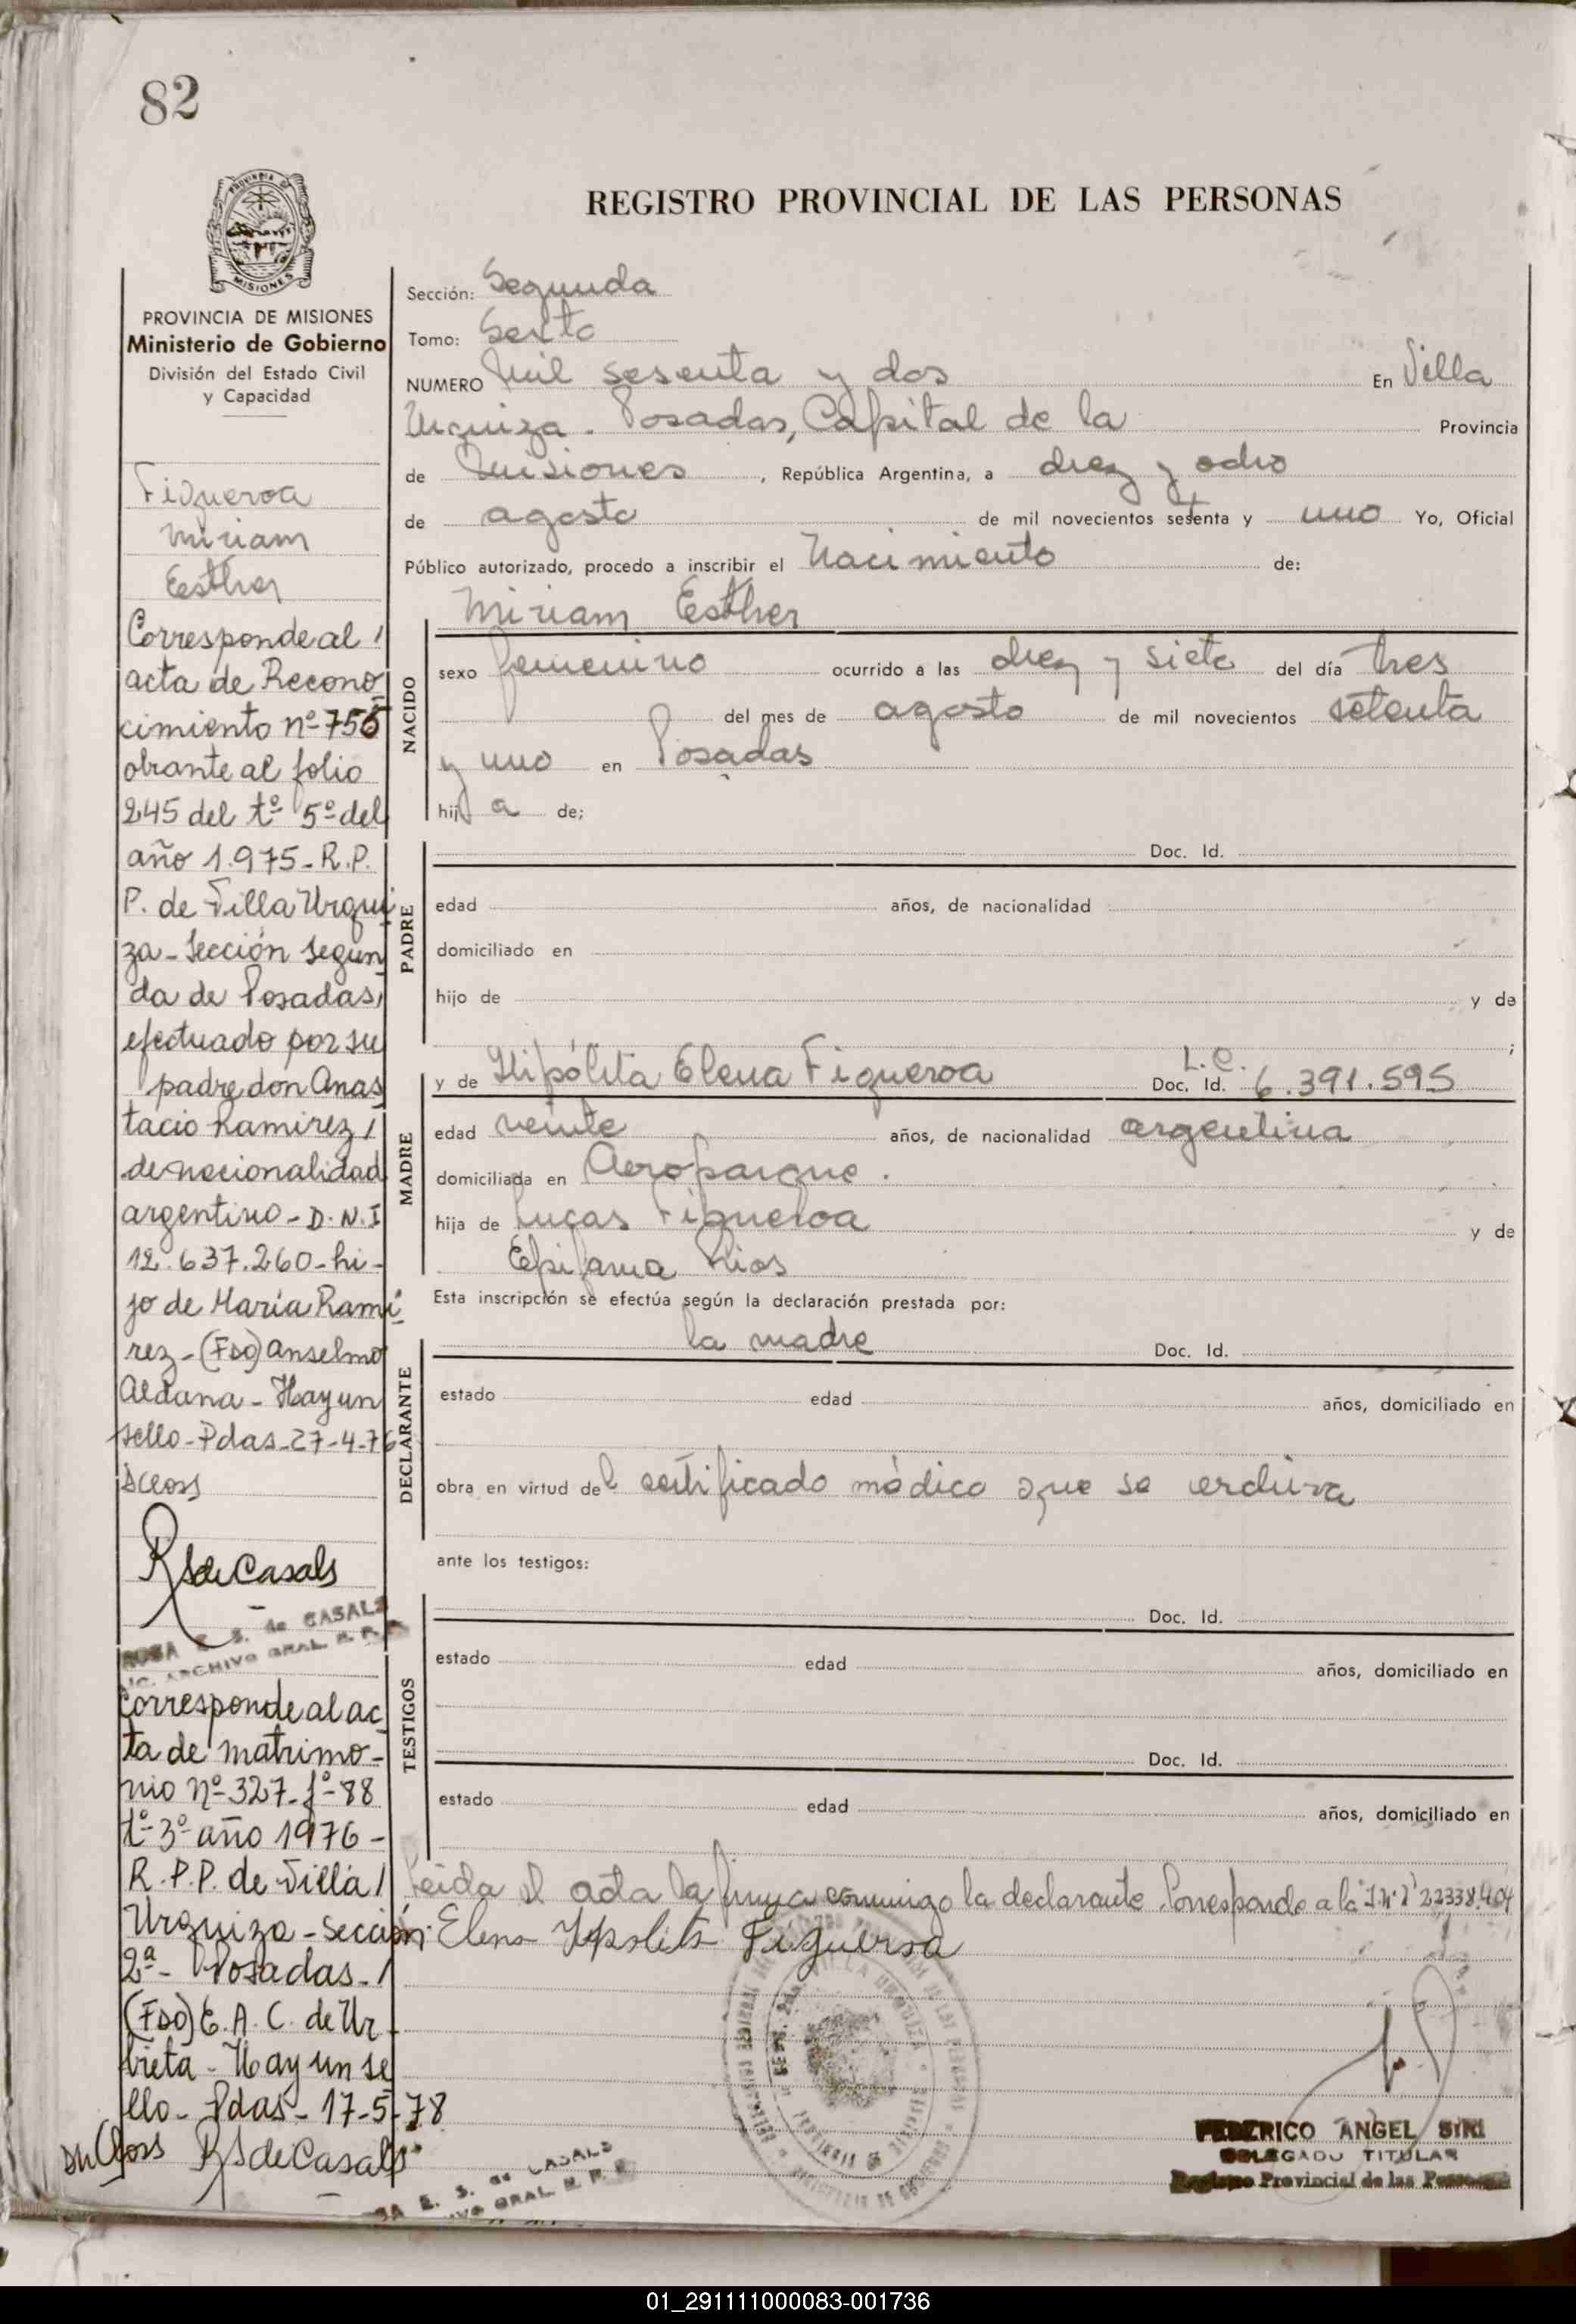 82
PROVINCIA DE MISIONES
Ministerio de Gobierno
División del Estado Civil
y Capacidad
Figueroa
Miriam
Esther
Corresponde al /
acta de Recono
cimiento nº 756
obrante al folio
245 del tº 5º del
año 1.975 - R.P.
P. de Villa Urqui
za - Sección Segun
da de Posadas,
efectuado por su
padre don Anas
tacio Ramirez /
de nacionalidad
argentino - D.N.I
12.637.260 - hi-
jo de María Rami
rez - (Fdo) Anselmo
Aldana - Hay un
sello - Pdas - 27-4-76
DCloss
RSdeCasals
ROSA E. S. de CASALS
ARCHIVO GRAL. R. P. P.
Corresponde al ac
ta de matrimo-
nio nº 327 - fº 88
tº 3º año 1976 -
R.P.P. de Villa /
Urquiza - Sección
2ª - Posadas - /
(Fdo) E. A. C. de Ur
bieta - Hay un se
llo - Pdas - 17-5-78
Closs RSdeCasals
E. S. de CASALS
GRAL. R. P. P.
REGISTRO PROVINCIAL DE LAS PERSONAS
Sección: Segunda
Tomo: Sexto
NUMERO Mil sesenta y dos En Villa
Urquiza - Posadas, Capital de la Provincia
de Misiones, República Argentina, a diez y ocho
de agosto de mil novecientos setenta y uno Yo, Oficial
Público autorizado, procedo a inscribir el Nacimiento de:
Miriam Esther
NACIDO
sexo femenino ocurrido a las diez y siete del día tres
del mes de agosto de mil novecientos setenta
y uno en Posadas
hij a de;
PADRE
Doc. Id.
edad años, de nacionalidad
domiciliado en
hijo de y de
;
MADRE
y de Hipólita Elena Figueroa L.C. Doc. Id. 6.391.595
edad veinte años, de nacionalidad argentina
domiciliada en Aeroparque.
hija de Lucas Figueroa y de
Epifania Rios
Esta inscripción se efectúa según la declaración prestada por:
DECLARANTE
la madre Doc. Id.
estado edad años, domiciliado en
obra en virtud del certificado médico que se archiva
ante los testigos:
TESTIGOS
Doc. Id.
estado edad años, domiciliado en
Doc. Id.
estado edad años, domiciliado en
Leida el acta la firma conmigo la declarante. Corresponde a la
Elena Ypolita Figueroa
VILLA URQUIZA
FEDERICO ANGEL SIRI
DELEGADO TITULAR
Registro Provincial de las Personas
01_291111000083-001736